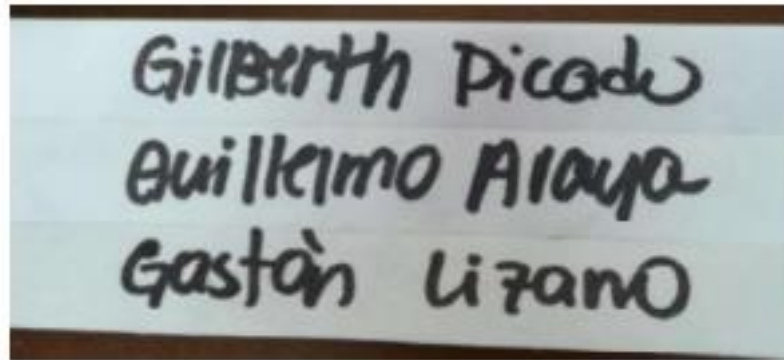 Gilberth Picado
Guillermo Araya
Gastòn Lizano